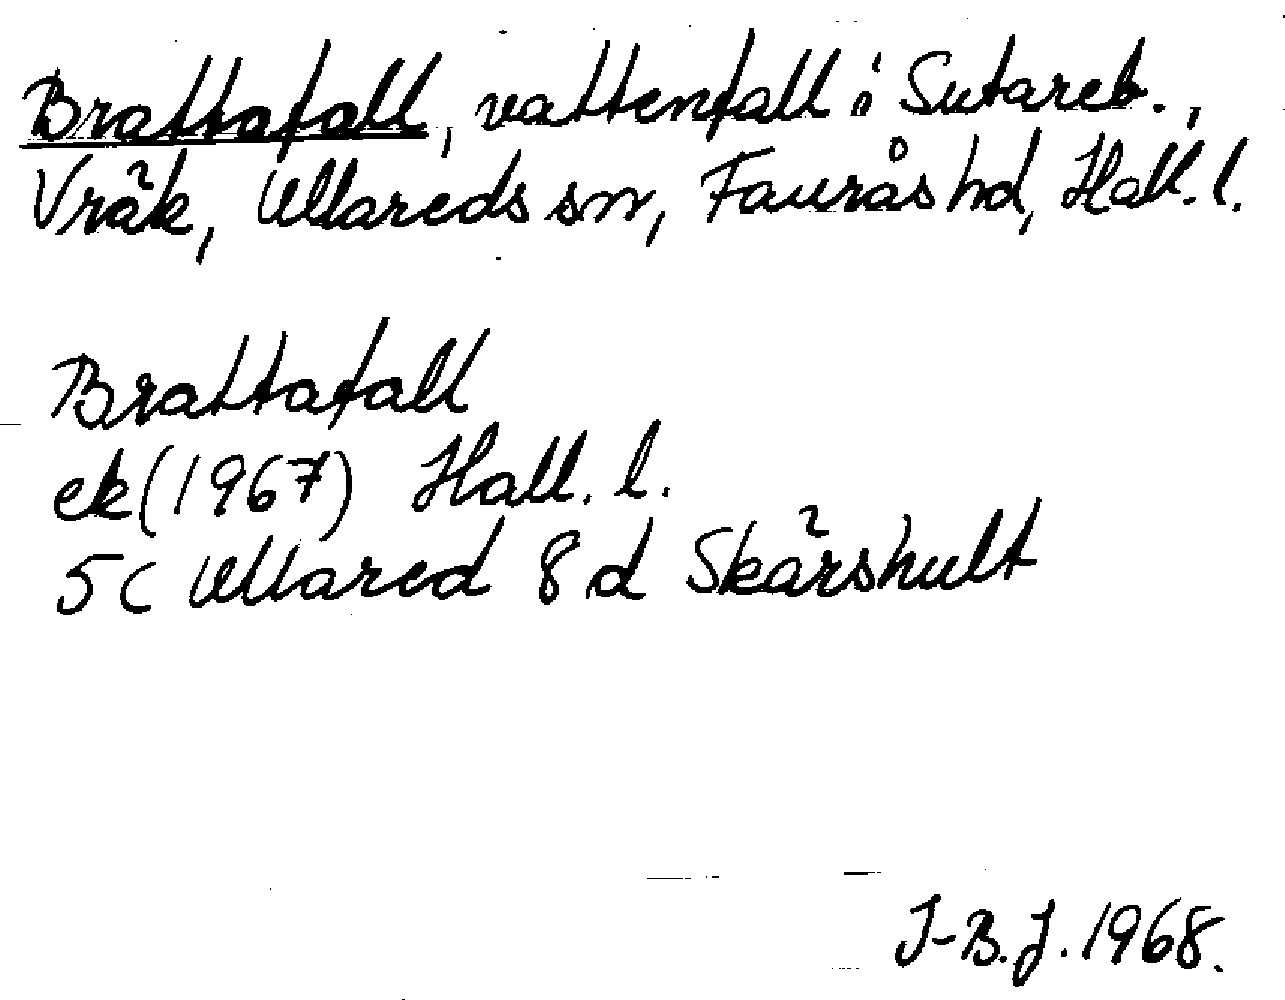 Brattafall, vattenfall i Sutareb.,
Vräk, Ullareds sn, Faurås hd, Hall. l.
Brattafall
ek (1967) Hall. l.
5C Ullared 8 d Skärshult
I-B.J. 1968.